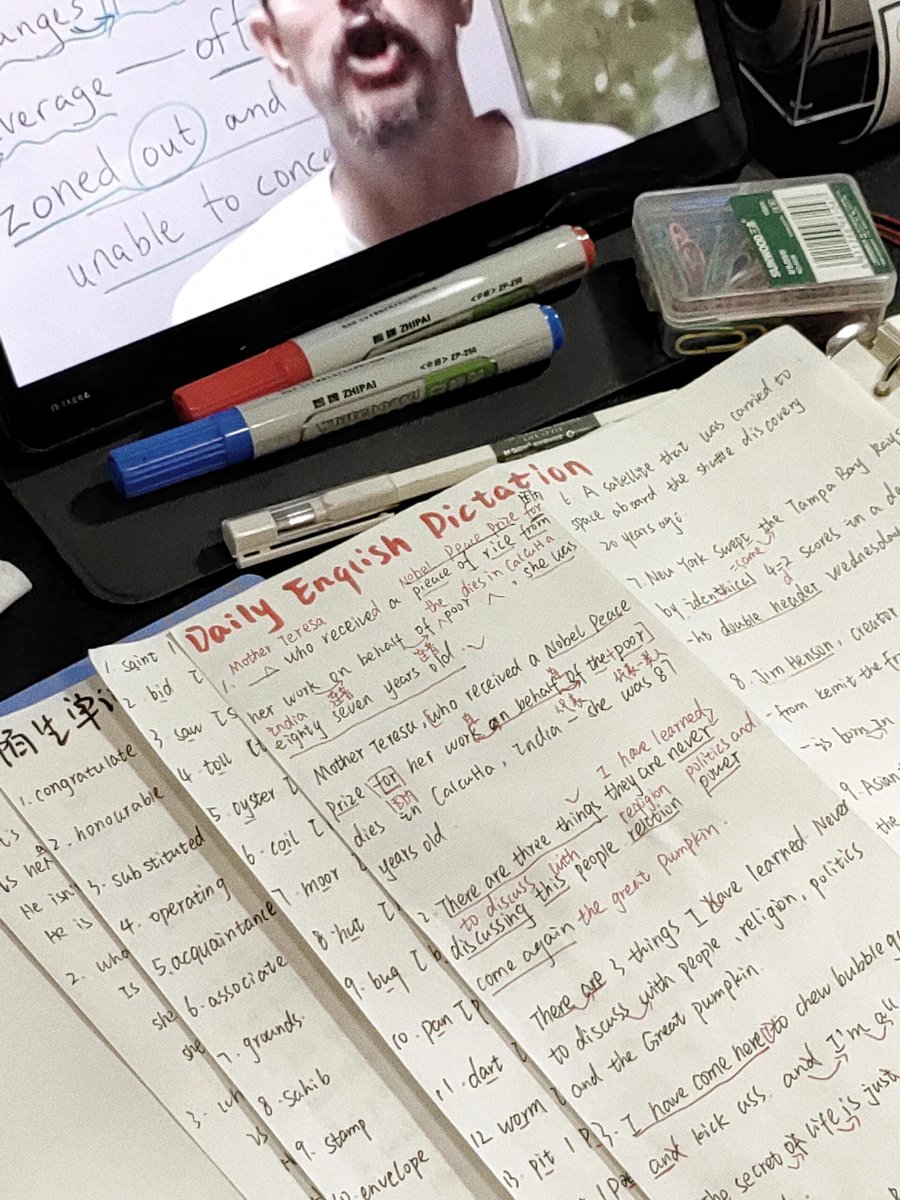 anges
verage — oft
zoned out and
unable to conce
ZHIPAI
<中油> ZP-250
ZHIPAI
<中油> ZP-250
WHITEBOARD
SUNWOOD
Daily English Dictation
Mother Teresa
Nobel Peace Prize for
1. who received a pieace of rice from
the dies in Calcutta
her work on behalf of poor , she was
India
eighty seven years old.
Mother Teresa, who received a Nobel Peace
Prize for her work on behalf of the poor
dies in Calcutta, India - she was 87
years old
I have learned
2. There are three things they are never
to discuss with religion politics and
discussing this people relition power
come again the great pumpkin.
There are 3 things I have learned Never
to discuss with people, religion, politics
and the Great pumpkin.
3. I have come here to chew bubble g
and kick ass. and I'm all
the secret of life is just
6. A satellite that was carried to
space aboard the shuttle discovery
20 years ago
7. New York swept the Tampa Bay Rays
-same
by identical 4-2 scores in a d
double header Wednesday
8. Jim Henson, creator
-from kemit the fr
-is born in
9. Asian
the
1. saint
2. bid
3. saw
4. toll
5. oyster
6. coil
7. moor
8. hut
9. bug
10. pan
11. dart
12. worm
13. pit
生单
1. congratulate
2. honourable
3. substituted
4. operating
5. acquaintance
6. associate
7. grounds.
8. sahib
9. stamp
10. envelope
is her
He isn'
He is
2. who
Is
she
she
3. wh